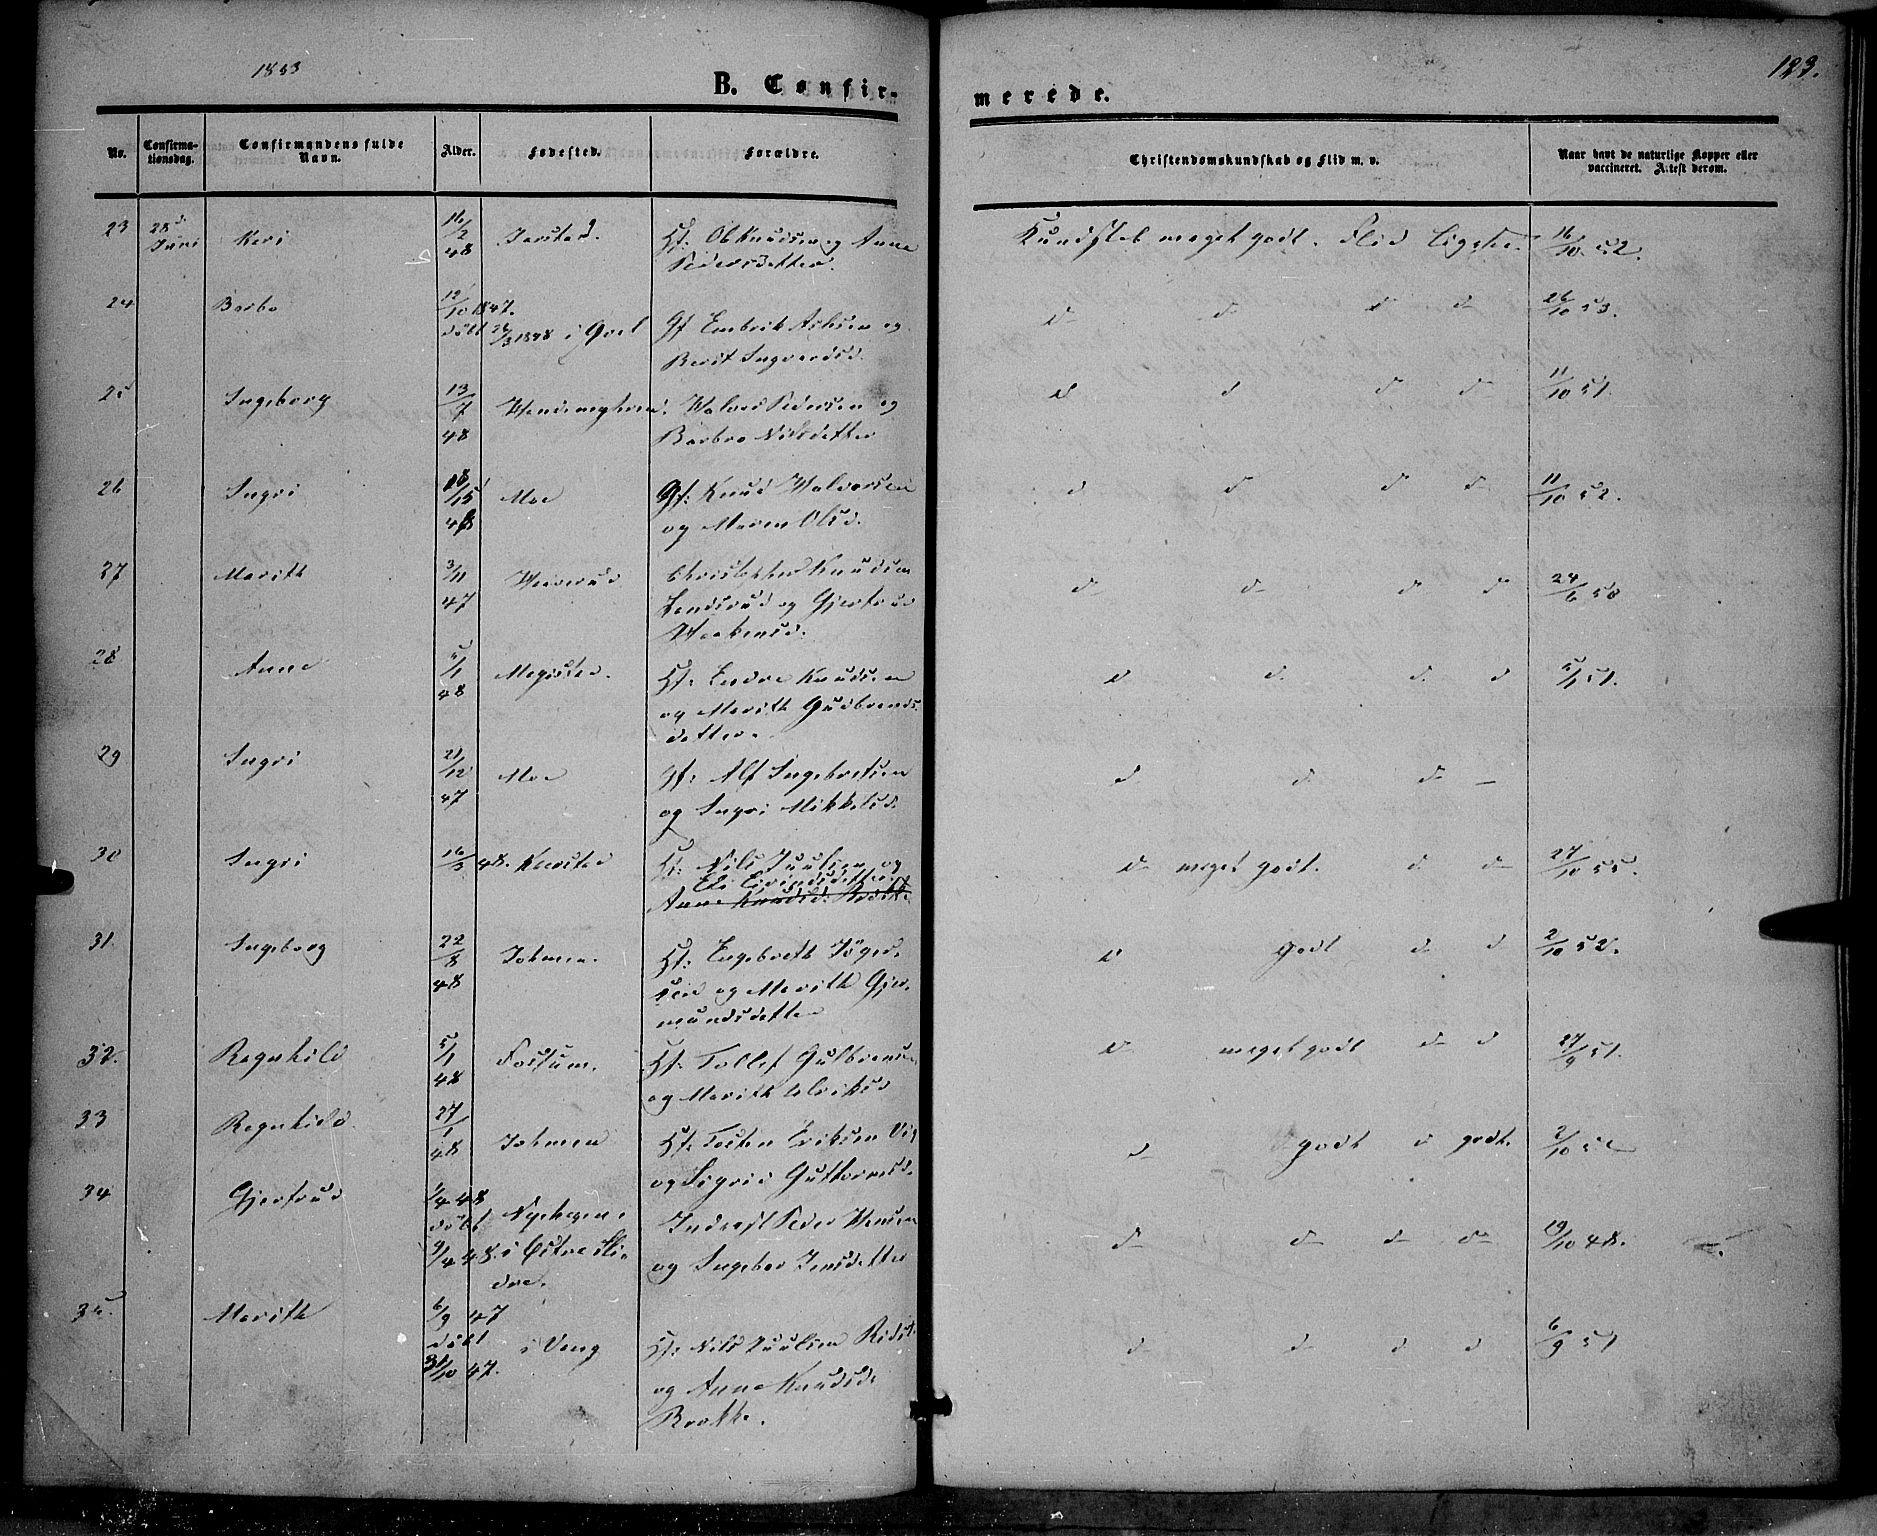 1863
B. Confir-
merede.
123.
No.
Confirma-
tionsdag.
Confirmandens fulde
Navn.
Alder.
Fødested.
Forældre.
Christendomskundskab og Flid m. v.
Naar havt de naturlige Kopper eller
vaccineret. Attest derom.
23 28d Juni Kari 16/2 48 Jarstad. Hf: Ol Knudsen og Anne
Pedersdatter.
Kundskab meget godt. Flid ligesaa. 16/10 52.
24 Barbo 12/10 1847.
døbt 1848 i Goel Gf Embrik Aslesen og
Berit Ingvardsd.
d d d d 26/10 53.
25 Ingeborg 13/7 48 Halvor Pedersen og
Barbro Nilsdatter
d d d d 11/10 51.
26 Ingri 48 Moe Gf: Knud Halvorsen
og Maren Olsd.
d d d d 11/10 52.
27 Marith 3/11 47 Christopher Knudsen
og Gjertrud
Haakensd.
d d d d 24/6 50
28 Anne 5/1 48 Megistad. Hf: Endre Knudsen
og Marith Gudbrands
datter.
d d. d. d 5/1 51.
29 Ingri 21/12 47 Moe Gf: Alf Ingebretsen
og Ingri Mikkelsd.
d d d
30 Ingri 16/3 48. Hf: Nils Juulsen og
Eli Eivindsdatter
Anne Knudsd:
d meget godt. d d 27/10 55.
31. Ingeborg 22/8 48 Hf: Engebreth
sen og Marith Gjer-
mundsdatter
d godt d d 2/10 52.
32. Ragnhild 5/1 48 Fossum. Hf: Tollef Gulbrandsen
og Marith Ulriksd
d meget godt d d 27/9 51.
33 Ragnhild. 27/1 48 Hf: Tosten Eriksen
og Sigrid Guttormsd.
d godt d godt. 2/10
34 Gjertrud 1/4 48
døbt Nyhagen
9/4 48. i Østre Sli-
dre.
Inderst Peder Hansen
og Ingebor Jensdatter
d d d d 19/10 48.
35. Marith 6/9 47
døbt
31/10 47. i Vang Hf: Nils Juulsen
og Anne Knudsd.
d d d d 6/9 51